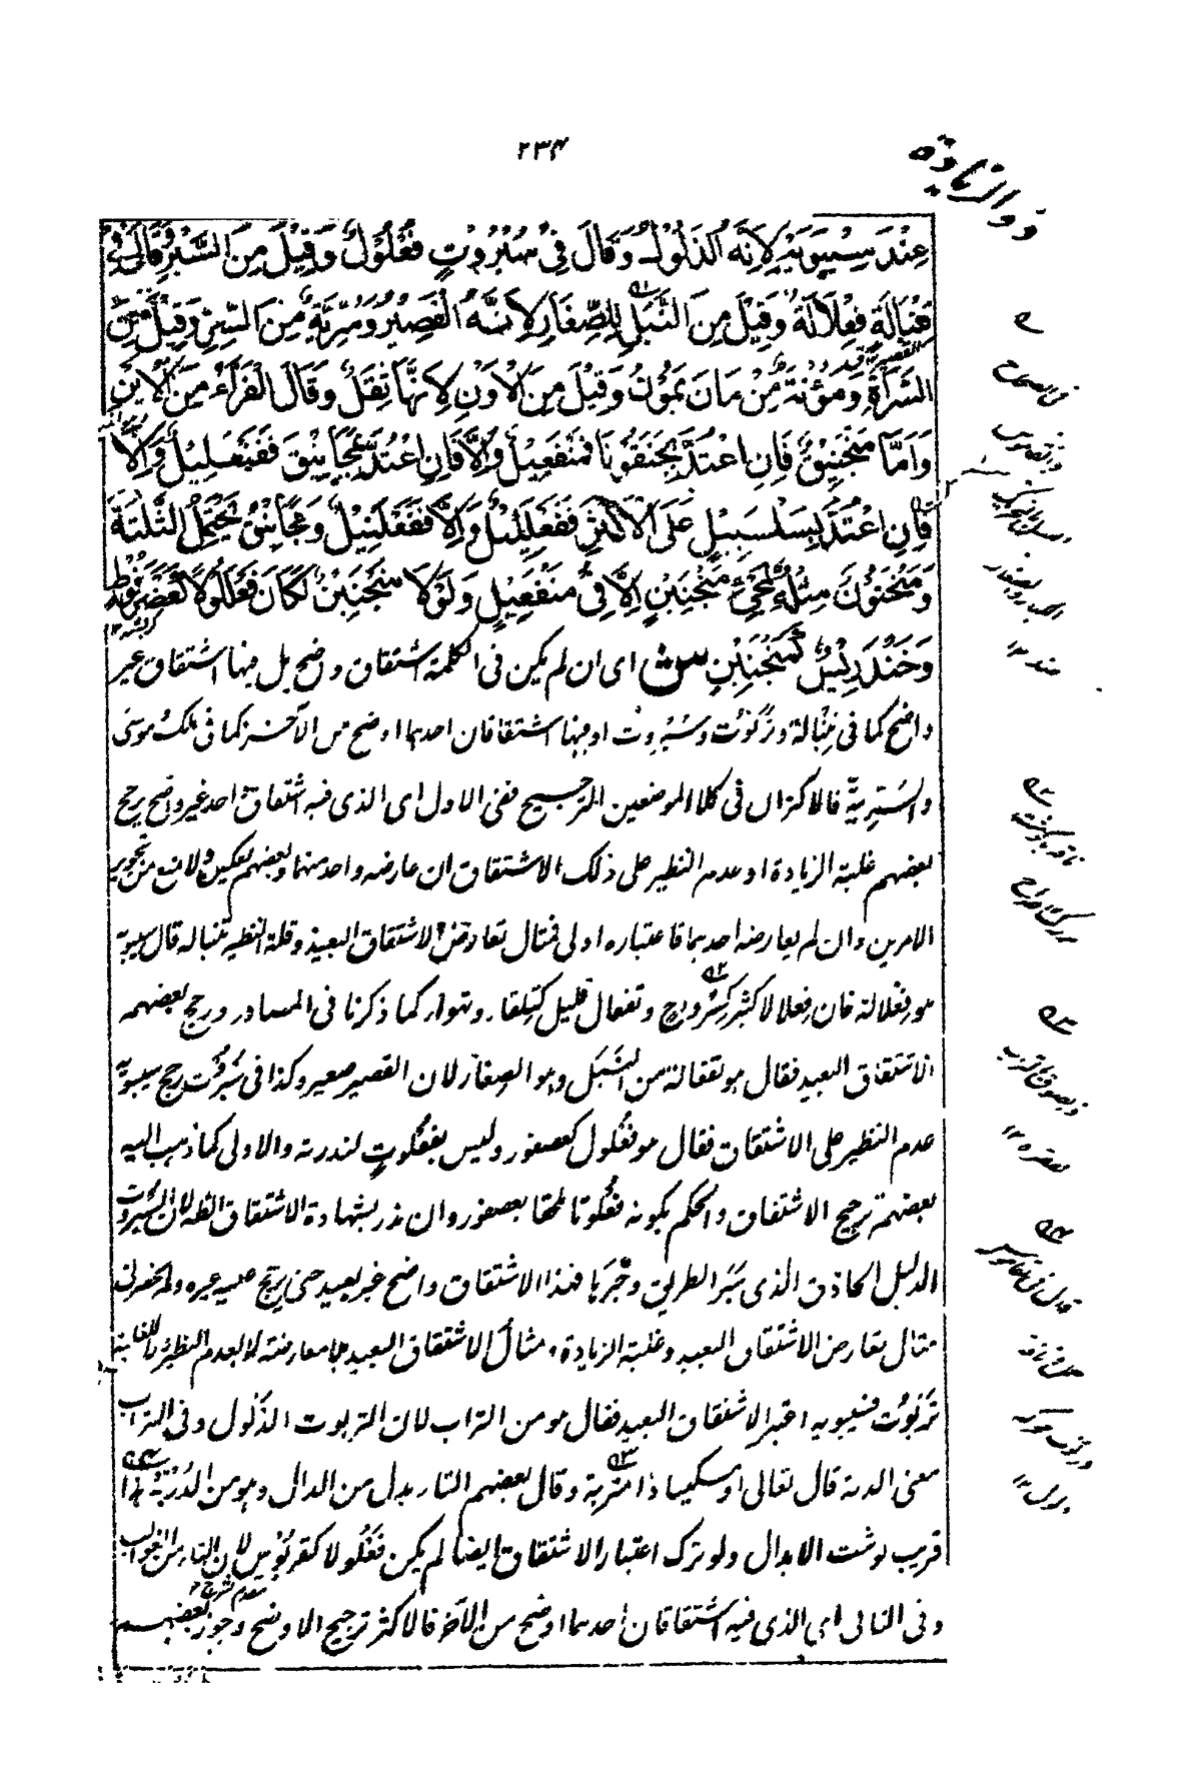 ٢٣٤
ذو الزيادة
عِنْدَ سِيْبَوَيْهِ لِاَنَّهُ الذَلُوْلُ وَقَالَ فِيْ سُبْرُوْتٍ فُعْلُوْلٌ وَقِيْلَ مِنَ السَّبْرِ وَقَالَ فِيْ
تِنْبَالَةٍ فِعْلَالَةٌ وَقِيْلَ مِنَ النَّبَلِ لِلصِّغَارِ لِاَنَّهُ الْقَصِيْرُ وَسُرِّيَّةٌ مِنَ السِّرِّ وَقِيْلَ مِنَ
السَّرَاةِ وَمَؤُنَةٌ مِنْ مَانَ يَمُوْنُ وَقِيْلَ مِنَ الْاَوْنِ لِاَنَّهَا ثِقَلٌ وَقَالَ الْفَرَّاءُ مِنَ الْاَيْنِ
وَاَمَّا مَنْجَنِيْقٌ فَاِنِ اعْتُدَّ بِجَنَقُوْنَا فَمَنْفَعِيْلٌ وَاِلَّا فَاِنِ اعْتُدَّ بِمَجَانِيْقَ فَفَنْعَلِيْلٌ وَاِلَّا
فَاِنِ اعْتُدَّ بِسَلْسَبِيْلٍ عَلَى الْاَكْثَرِ فَفَعْلَلِيْلٌ وَاِلَّا فَفَعْلَنِيْلٌ وَمَجَانِيْقُ يَحْتَمِلُ الثَّلٰثَةَ
وَمَنْجَنُوْنٌ مِثْلُهُ لِمَجِيْءِ مَنْجَنِيْنٍ اِلَّا فِيْ مَنْفَعِيْلٍ وَلَوْلَا مَنْجَنِيْنٌ لَكَانَ فَعْلَلُوْلًا كَعَضْرَفُوْطٍ
وَخَنْدَرِيْسٌ كَمَنْجَنِيْنٍ ش اى ان لم يكن فى الكلمة اشتقاق واضح بل فيها اشتقاق غير
واضح كما فى تِنْبالة وتَرَبُوت وسُبْروت او فيها اشتقاقان احدهما اوضح من الآخر كما فى ملك موسى
والسُرِّيَّة فالاكثران فى كلا الموضعين الترجيح ففى الاول اى الذى فيه اشتقاق واحد غير واضح يرجح
بعضهم غلبة الزيادة او عدم النظير على ذلك الاشتقاق ان عارضه واحد منهما وبعضهم يعكس ولا منع من تجويز
الامرين وان لم يعارضه احدهما فاعتباره اولى فمثال تعارض الاشتقاق البعيد وقلة النظير تنبالة قال سيبويه
هو فِعلالة فان فِعلالا كثير كسِرْداح وتفعال قليل كتِلقاء وتهواء كما ذكرنا فى المصادر ورجح بعضهم
الاشتقاق البعيد فقال هو تفعالة من النَبَل وهو الصِغار لان القصير صغير وكذا فى سُبْروت رجح سيبويه
عدم النظير على الاشتقاق فقال هو فُعْلول كعصفور وليس بفُعْلوتٍ لندرته والاولى كما ذهب اليه
بعضهم ترجيح الاشتقاق والحكم بكونه فُعْلوتا ملحقا بعصفور وان ندر بشهادة الاشتقاق الظ لان السُبروت
الدليل الحاذق الذى سَبَرَ الطرق وخَبَرَها فهذا الاشتقاق واضح غير بعيد حتى يرجح عليه غيره ولم يحضرنى
مثال تعارض الاشتقاق البعيد وغلبة الزيادة، مثال الاشتقاق البعيد بلا معارضة لا لعدم النظير ولا للغلبة
تَرَبُوت فسيبويه اعتبر الاشتقاق البعيد فقال هو من التراب لان التربوت الذَلول وفى التراب
معنى الذلة قال تعالى او مسكينا ذا متربة وقال بعضهم التاء بدل من الدال وهو من الدُرْبة هذا
قريب لوثبت الابدال ولو ترك اعتبار الاشتقاق ايضا لم يكن فَعَلُولا كقَرَبوس لان التاء من الغوالب
وفى الثانى اى الذى فيه اشتقاقان احدهما اوضح من الآخر فالاكثر ترجيح الاوضح وجوز بعضهم